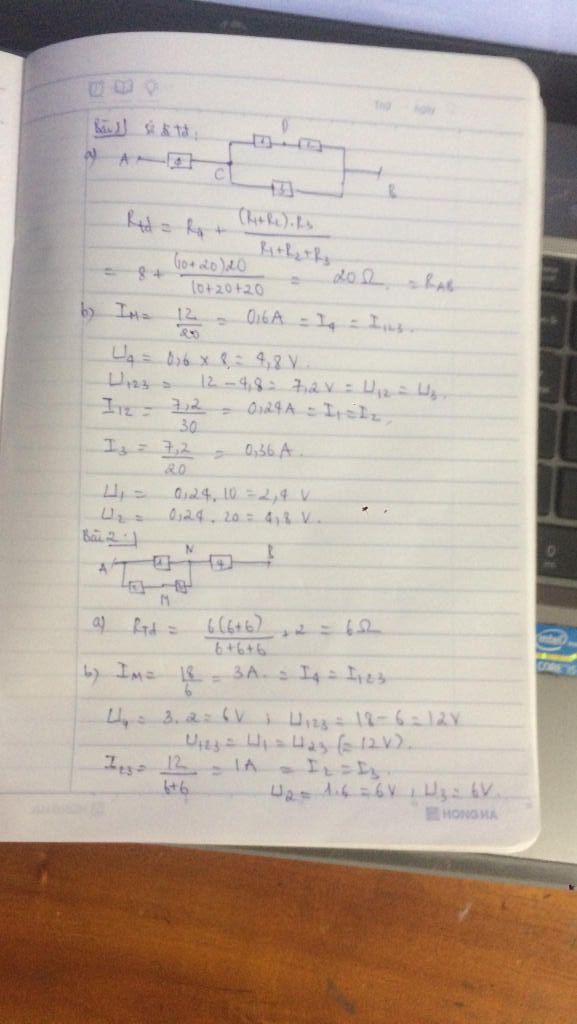 Thứ Ngày
Bài 1) sơ đồ tđ:
a) A 4 C 1 D 2 3 B
Rtđ = R4 + (R1+R2).R3 / R1+R2+R3
= 8 + (10+20)20 / 10+20+20 = 20Ω = RAB
b) IM = 12/20 = 0,6A = I4 = I123.
U4 = 0,6 x 8 = 4,8 V.
U123 = 12 - 4,8 = 7,2 V = U12 = U3.
I12 = 7,2/30 = 0,24A = I1 = I2.
I3 = 7,2/20 = 0,36A.
U1 = 0,24.10 = 2,4 V
U2 = 0,24.20 = 4,8 V.
Bài 2:
A 1 N 4 B
M
a) RTđ = 6(6+6) / 6+6+6 + 2 = 6Ω
b) IM = 18/6 = 3A. = I4 = I123
U4 = 3.2 = 6V ; U123 = 18 - 6 = 12V
U123 = U1 = U23 (= 12V).
I23 = 12 / 6+6 = 1A = I2 = I3
U2 = 1.6 = 6V ; U3 = 6V.
HONG HA
intel
CORE i5
0